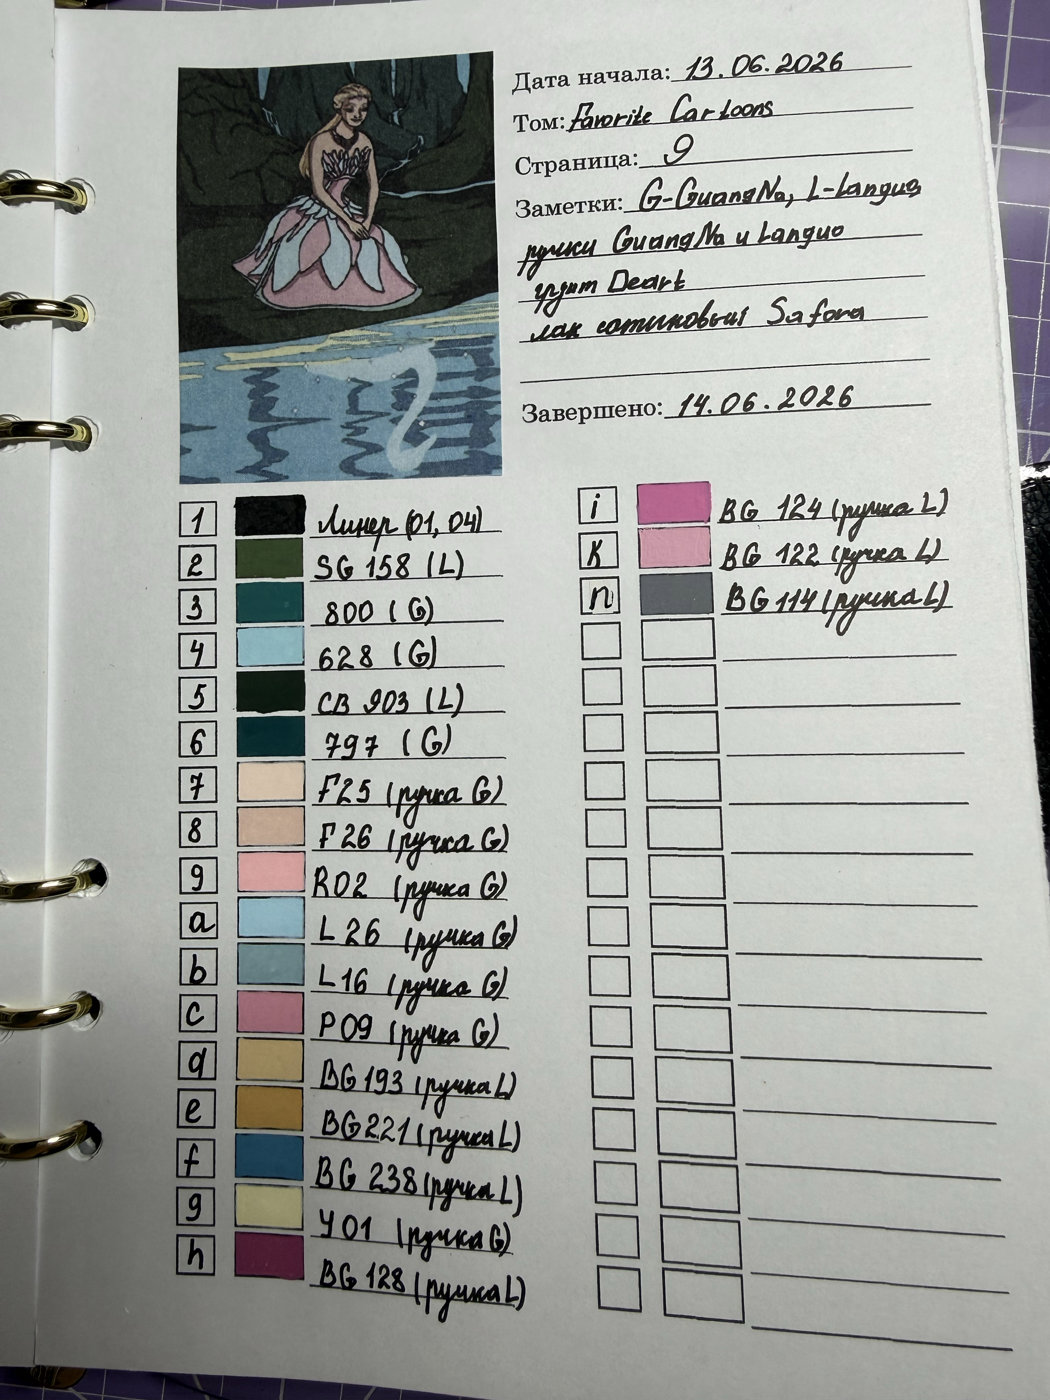 Дата начала: 13.06.2026
Том: Favorite Cartoons
Страница: 9
Заметки: G-GuangNa, L-Languo,
ручки GuangNa и Languo
грунт Deart
лак сатиновый Safora
Завершено: 14.06.2026
1 Линер (01, 04)
2 SG 158 (L)
3 800 (G)
4 628 (G)
5 СВ 903 (L)
6 797 (G)
7 F25 (ручка G)
8 F26 (ручка G)
9 R02 (ручка G)
a L26 (ручка G)
b L16 (ручка G)
c P09 (ручка G)
d BG193 (ручка L)
e BG221 (ручка L)
f BG 238 (ручка L)
g Y01 (ручка G)
h BG 128 (ручка L)
i BG 124 (ручка L)
K BG 122 (ручка L)
n BG114 (ручка L)